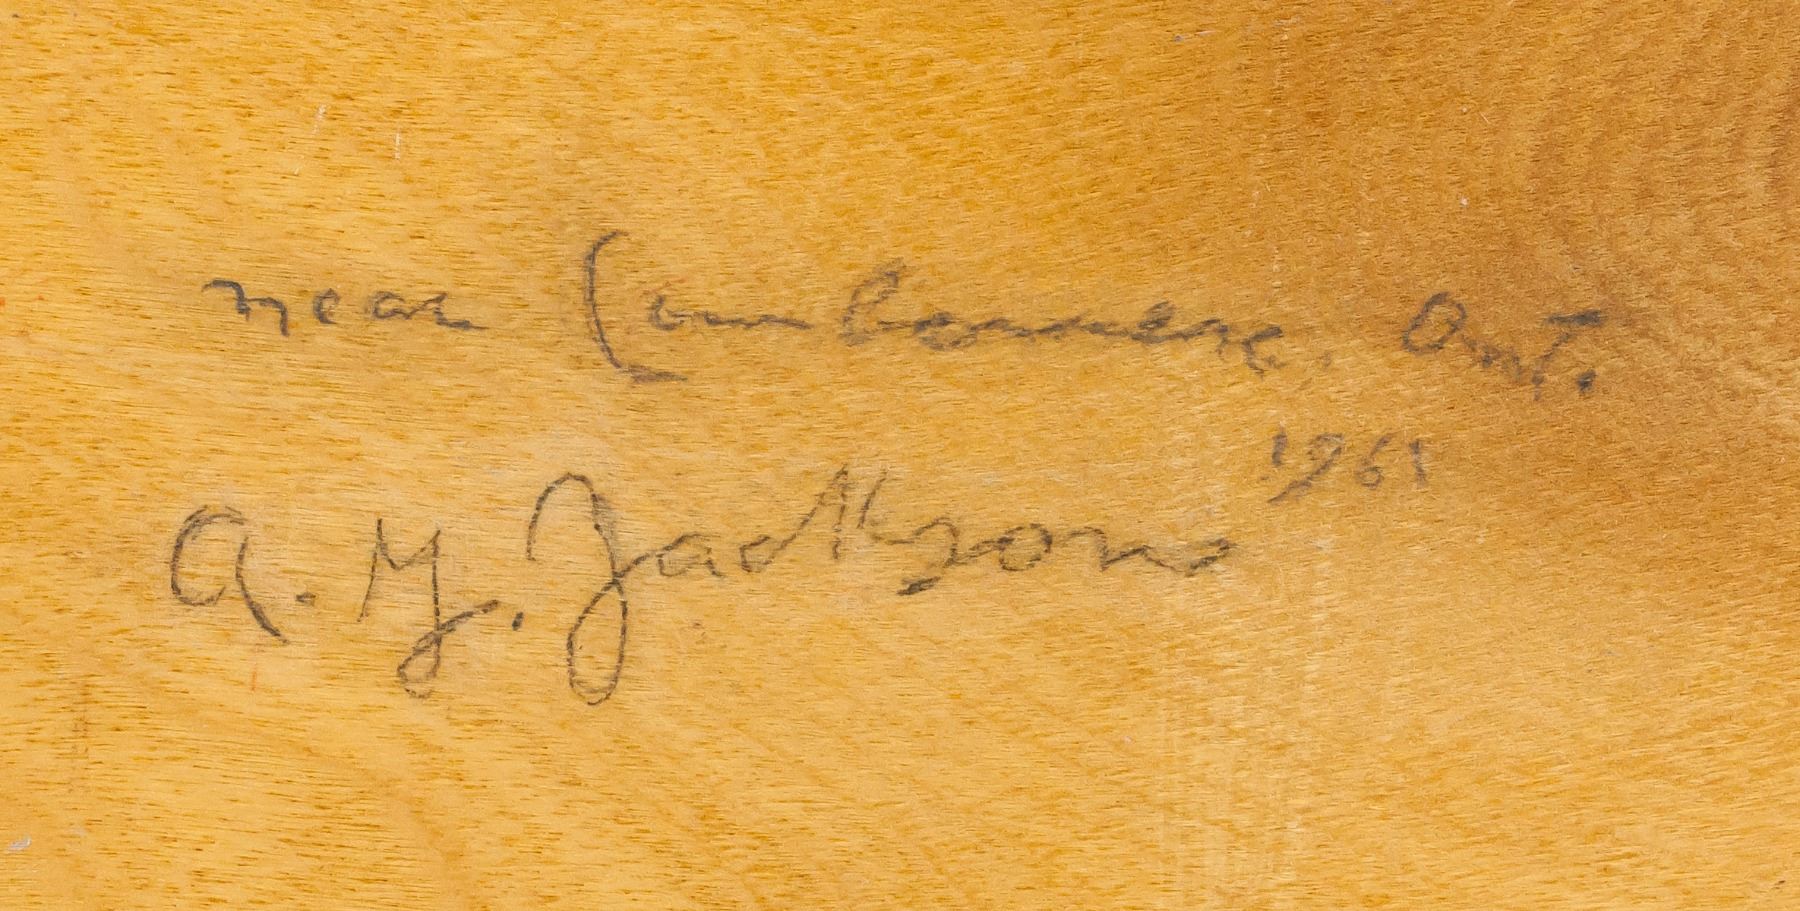 near Combermere. Ont.
1961
A. Y. Jackson